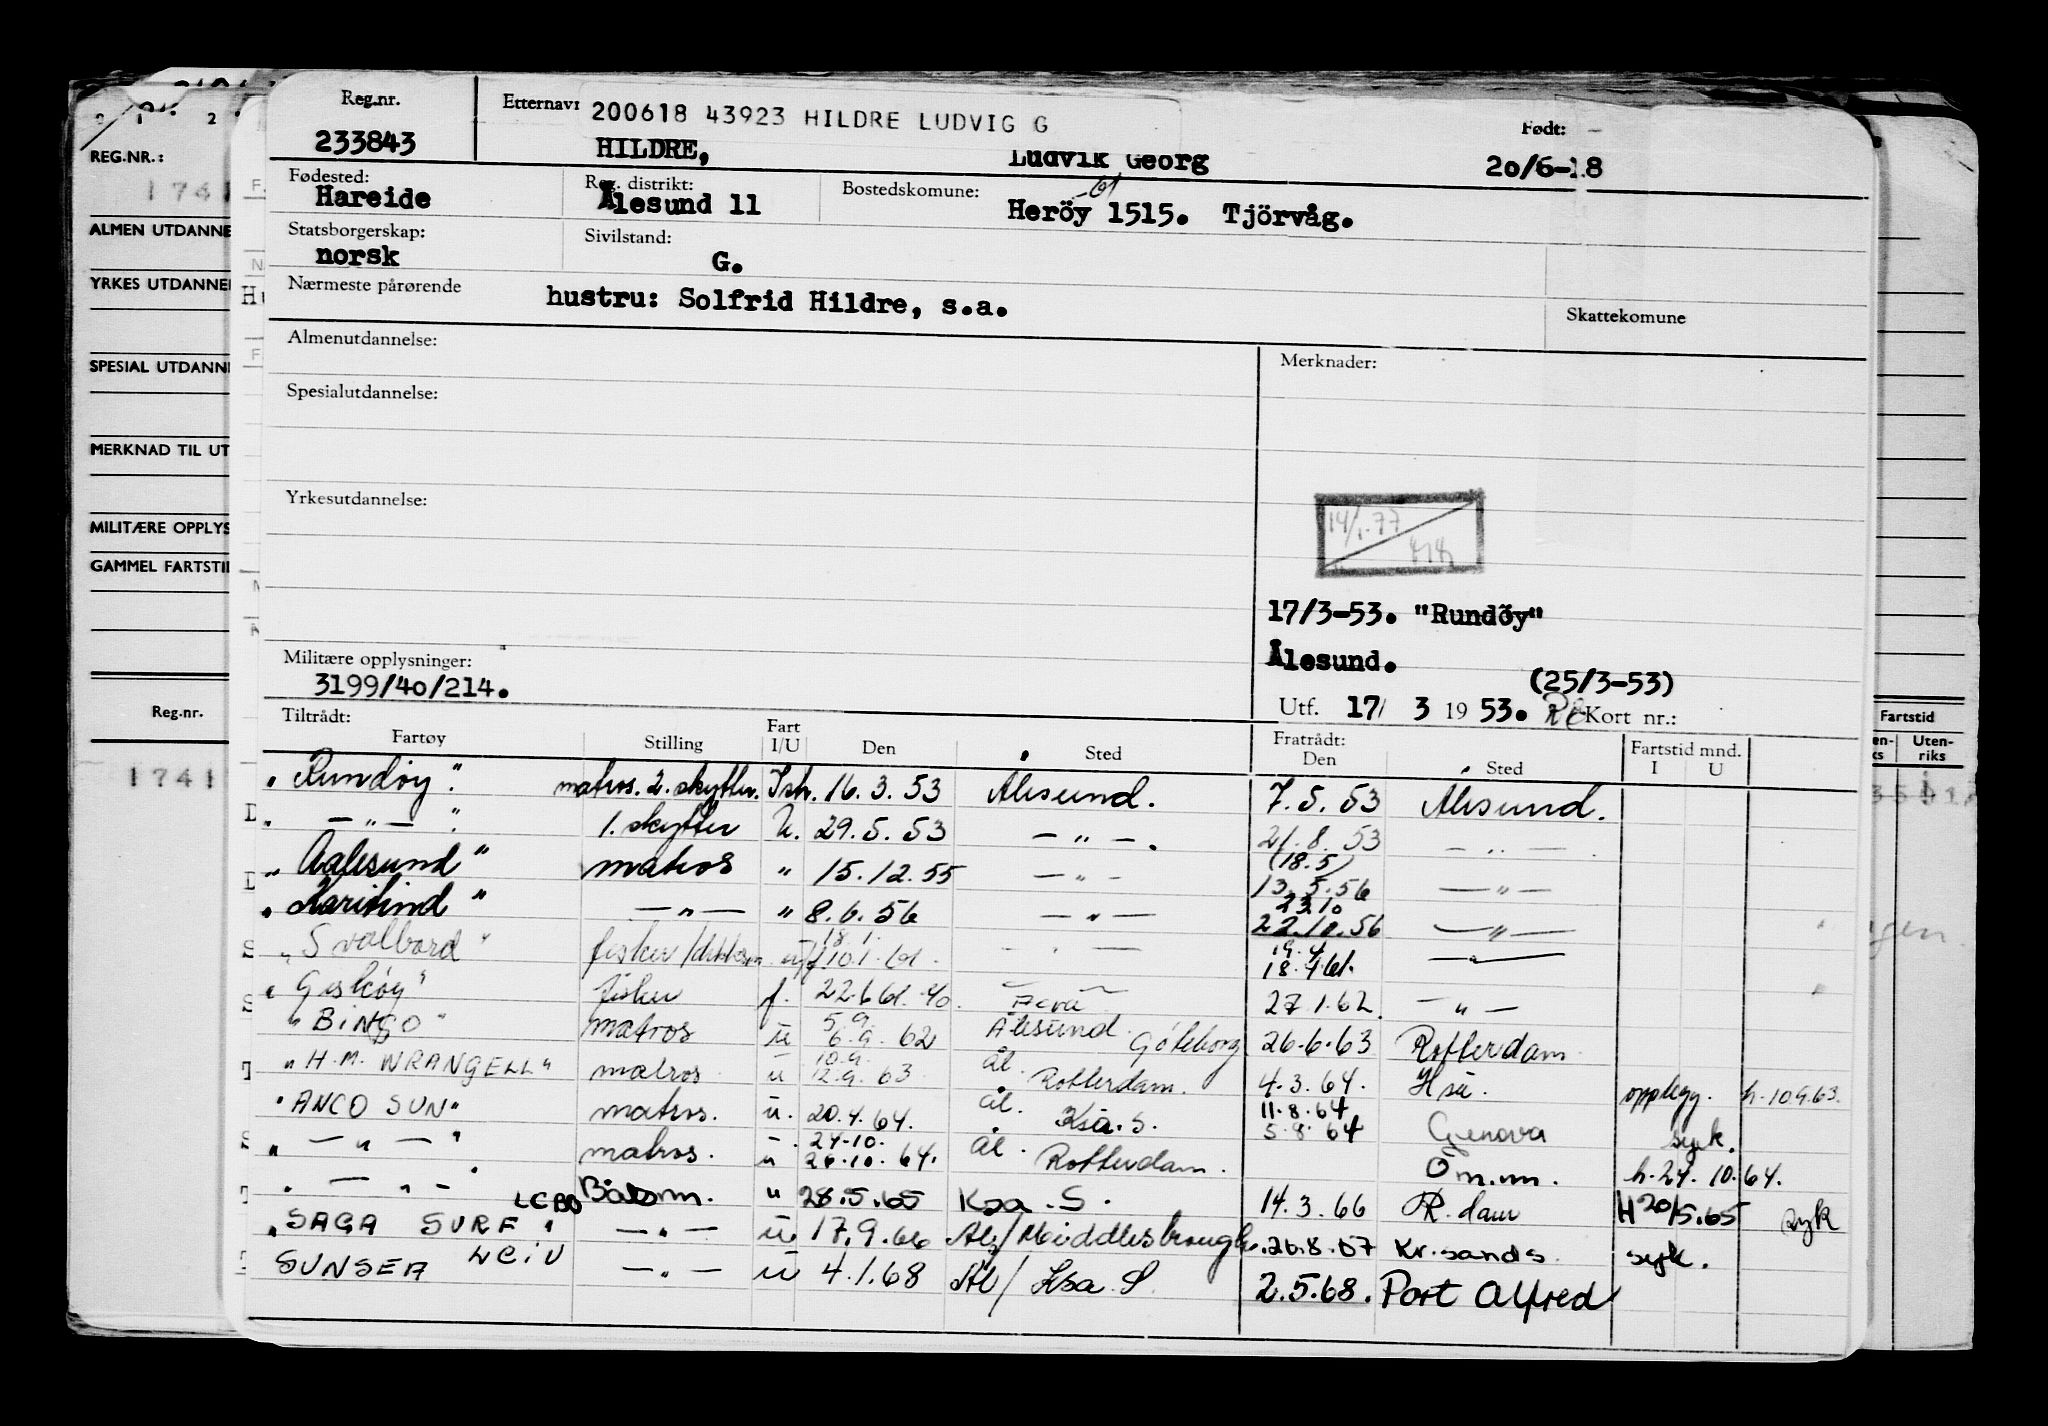 Reg.nr. Etternavn 200618 43923 HILDRE LUDVIG G Født:
233843 HILDRE, Ludvik Georg 20/6-18
Fødested: Reg. distrikt: Bostedskomune:
Hareide Ålesund 11 Heröy 1515. Tjörvåg.
Statsborgerskap: Sivilstand:
norsk G.
Nærmeste pårørende hustru: Solfrid Hildre, s.a.
Skattekomune
Almenutdannelse: Merknader:
Spesialutdannelse:
Yrkesutdannelse:
14/1.77
17/3-53. "Rundöy"
Ålesund.
Militære opplysninger:
3199/40/214.
(25/3-53)
Utf. 17/ 3 1953. Kort nr.:
Tiltrådt: Fratrådt:
Fartøy Stilling Fart I/U Den Sted Den Sted Fartstid mnd. I U
"Rundøy" matros. 2. skytter. Ish. 16.3.53 Ålesund. 7.5.53 Ålesund.
" — " — " 1. skytter U. 29.5.53 — " — . 21.8.53 — " —
(18.5)
"Aalesund" matros " 15.12.55 — " — 13.5.56 — " —
23.10
" " — " — " 8.6.56 — " — 22.10.56 — " —
18.1. 19.4
"Svalbard" 10.1.61. — " — 18.4.61. — " —
"Giskøy" fisker f. 27.1.62. — " —
5.9
"BINGO" matros u 6.9.62 Ålesund. Göteborg 26.6.63 Rotterdam
10.9.
"H.M. WRANGELL" matros u 12.9.63 Ål. Rotterdam. 4.3.64. Hsu. opplegg. h. 10.9.63.
11.8.64
"ANCO SUN" matros. u. 20.4.64. Ål. Ksa.S. 5.8.64 Genova syk.
24.10.
" — " — " matros. u 26.10.64. Ål. Rotterdam. Om.m. h. 24.10.64.
" — " — " Båtsm. " 28.5.65 Ksa.S. 14.3.66 R.dam H 20/5.65 syk
"SAGA SURF" LCBD — " — u. 17.9.66 Ål/Middlesbrough. 26.8.67 Kr.sands. syk.
SUNSEA LCIU — " — u 4.1.68 Ål/ Ksa.S. 2.5.68. Port Alfred
REG.NR.:
1741
ALMEN UTDANNE
YRKES UTDANNE
SPESIAL UTDANN
MERKNAD TIL UT
MILITÆRE OPPLYS
GAMMEL FARTSTI
Reg.nr.
1741
Fartstid
Uten-
riks